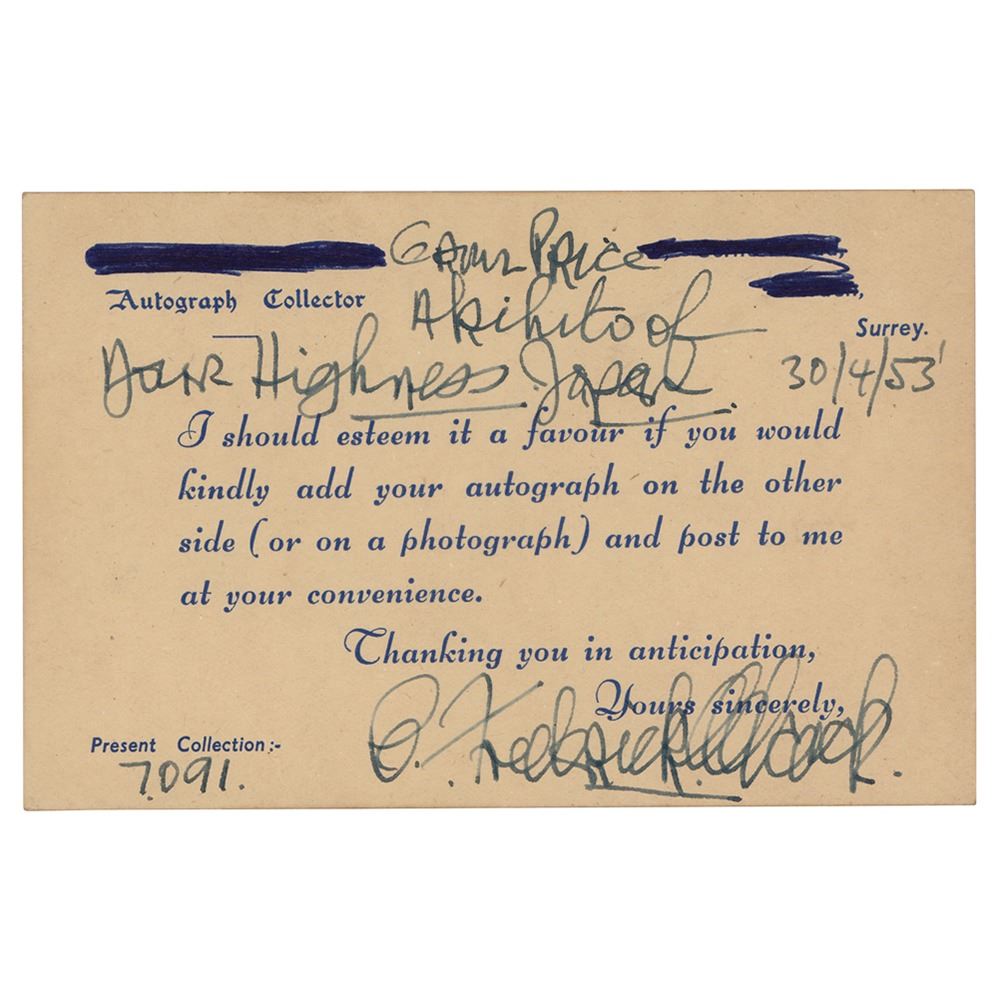 Akihito of
Autograph Collector
Surrey.
Dear Highness Japan
30/4/53
I should esteem it a favour if you would
kindly add your autograph on the other
side (or on a photograph) and post to me
at your convenience.
Thanking you in anticipation,
Yours sincerely,
Present Collection:-
7091.